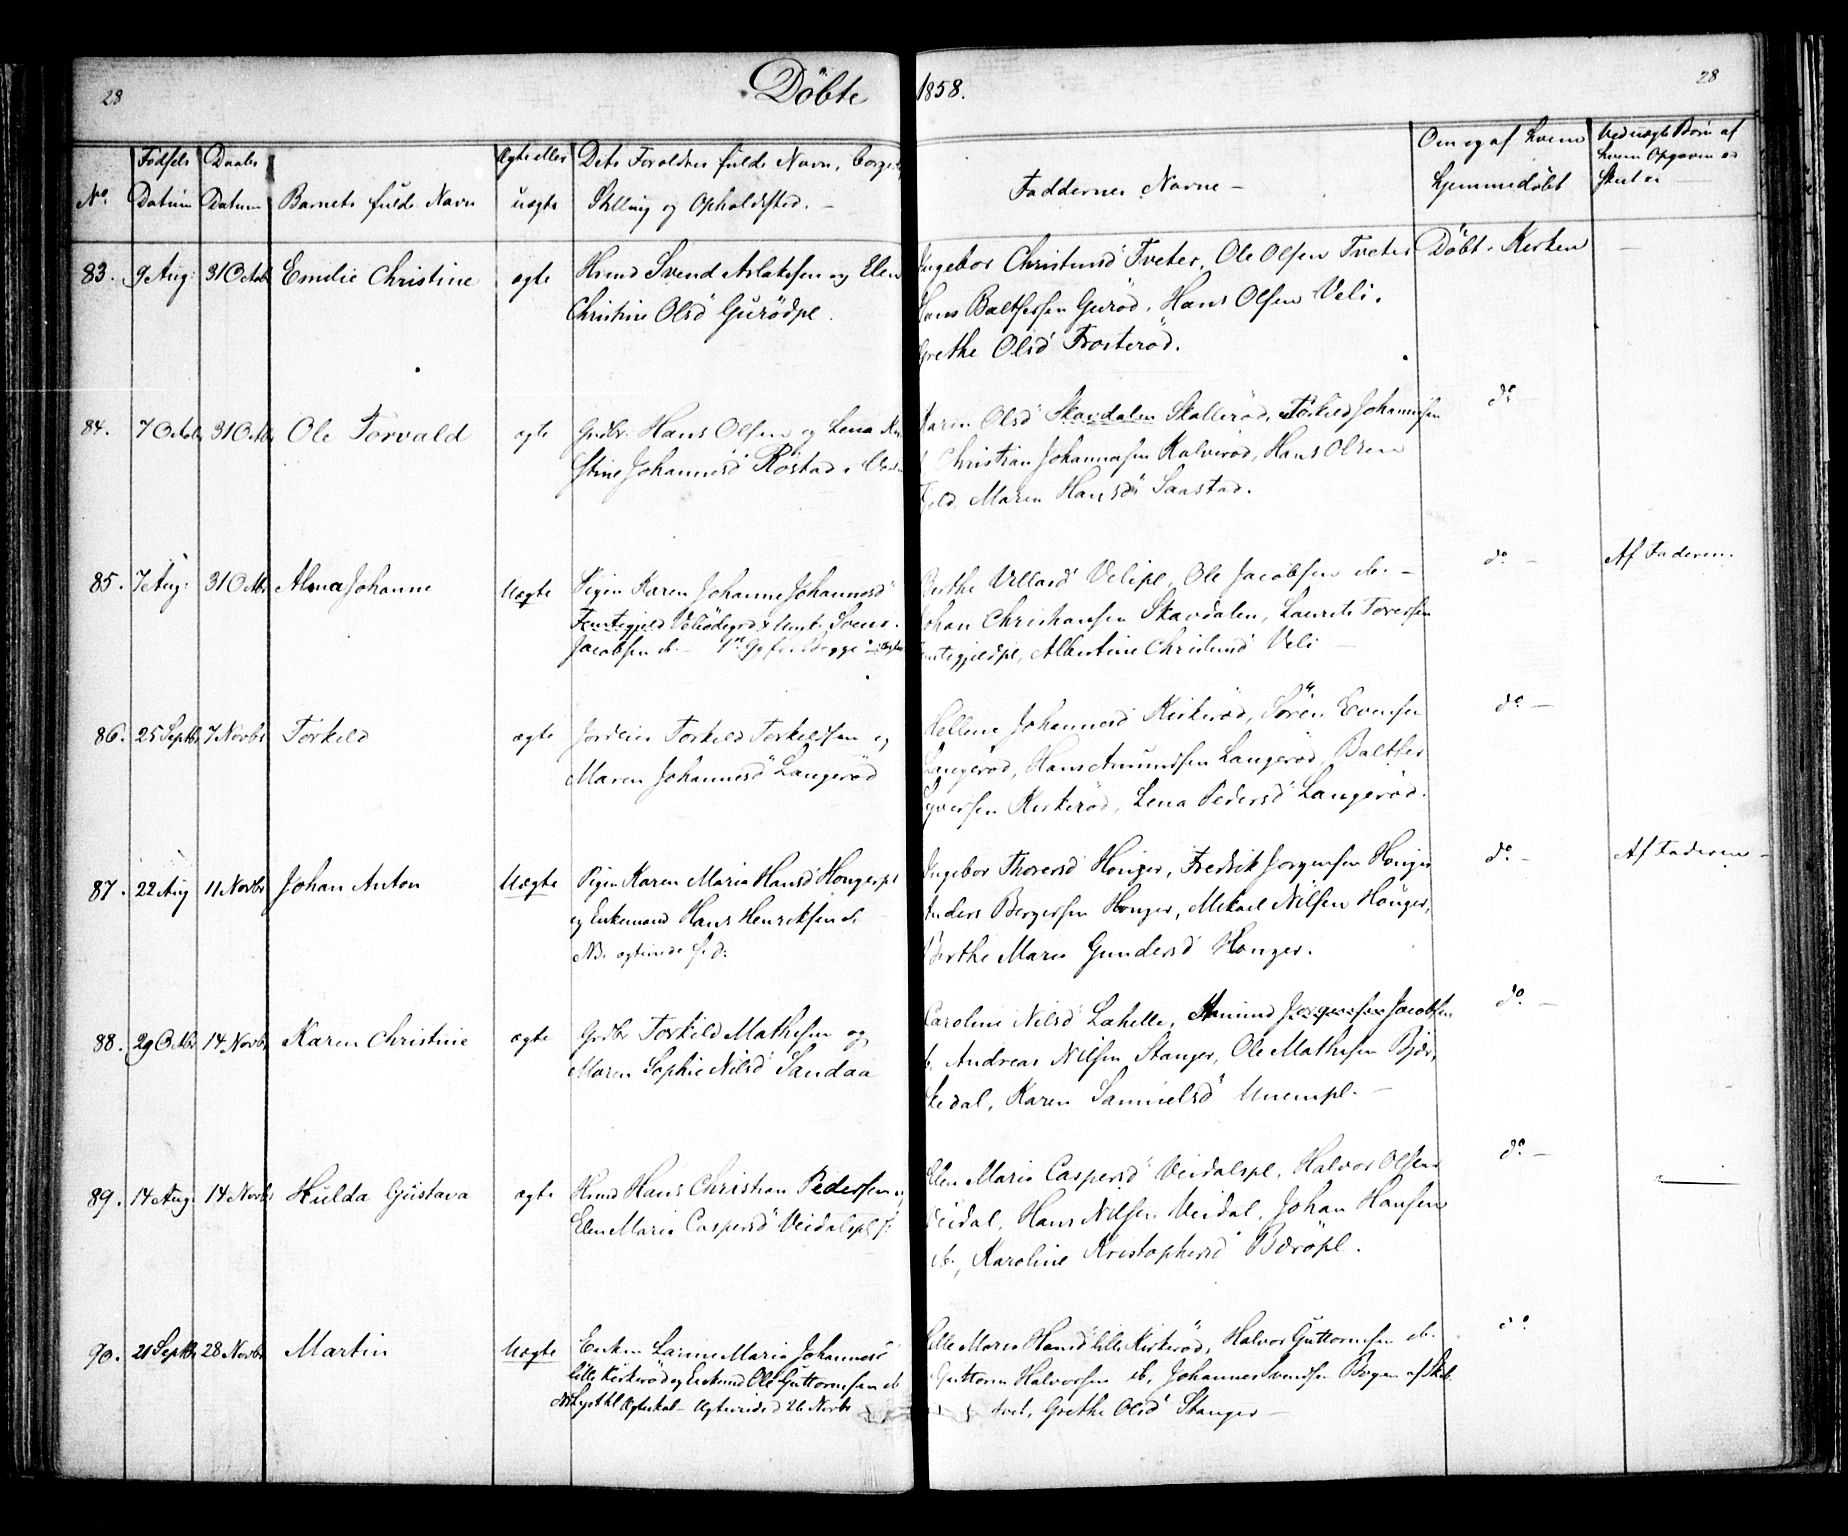 28
Döbte
1858.
28
No
Födsels
Datum
Daabs
Datum
Barnets fulde Navn
Ægte eller
uægte
Dets Forældres fulde Navn,
Stilling og Opholdssted. —
Faddernes Navne —
Om og af hvem
hjemmedöbt
Ved uægte Børn af
hvem Opgaven er
83. 9 Aug: 31 Octob Emilie Christine ægte
Svend Aslaksen og Elen
Christine Olsd Gurödpl.
Ingebor Christensd Tveter, Ole Olsen Tveter Döbt i Kirken —
Hans Balthersen Guröd, Hans Olsen Veli,
Grethe Olsd Frosteröd.
84. 7 Octob 31 Octb Ole Torvald ægte
Grdbr. Hans Olsen og Lena
stine Johannesd Röstad
Karen Olsd Skavdalen Skalleröd, Torkild Johannesen do
Christian Johannesen Kalveröd, Hans Olsen
Maren Hansd Saastad.
85. 7 Aug: 31 Octbr Alma Johanne Uægte
Pigen Karen Johanne Johannesd
Jacobsen
Berthe Ullasd Velipl, Ole Jacobsen ib. — do — Af Faderen.
Johan Christiansen Skavdalen, Laurits Toversen
Albertine Christensd Veli —
86. 25 Septbr 7 Novbr Torkild ægte
Torkild Torkildsen og
Maren Johannesd Langeröd
Hellene Johannesd Kirkeröd, Sören Evensen do —
Langeröd, Hans Amundsen Langeröd, Balther
Syversen Kirkeröd, Lena Pedersd Langeröd.
87. 22 Aug 11 Novbr Johan Anton Uægte
Pigen Karen Maria Hansd Hongerpl
og Enkemand Hans Henriksen
NB.
Ingebor Thoresd Honger, Fredrik Jorgensen Honger do — Af Faderen —
Anders Bergersen Honger, Mikael Nilsen Honger,
Berthe Maria Gundersd Honger.
88. 29 Octbr 14 Novbr Karen Christine ægte
Grdbr Torkild Mathisen og
Maren Sophie Nilsd Sandaa
Caroline Nilsd Lahelle, Amund Jorgensen Jacobsen do —
ib. Andreas Nilsen Stanger, Ole Mathisen Bjør,
kedal, Karen Samuelsd Unempl. —
89. 14 Aug. 14 Novbr Hulda Gustava ægte
Hans Christian Pedersen og
Elen Maria Caspersd Veidalspl
Elen Maria Caspersd Veidalspl, Halvor Olsen do —
Veidal, Hans Nilsen Veidal, Johan Hansen
ib., Karoline Kristophersd Beröpl.
90. 21 Septbr 28 Novbr Martin Uægte
Enken Maria Johannesd
lille Kirkeröd og Ole Guttormsen ib
26 Novbr
Maria Hansd lille Kirkeröd, Halvor Guttormsen ib. do
Guttorm Halvorsen ib, Johannes Svendsen Bogen af
Grethe Olsd Stanger —